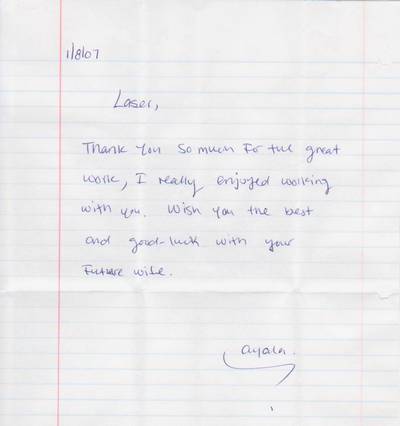 1/8/07
Laser,
Thank you so much For the great
work, I really enjoyed working
with you. Wish you the best
and good-luck with your
Future wife.
Ayala.